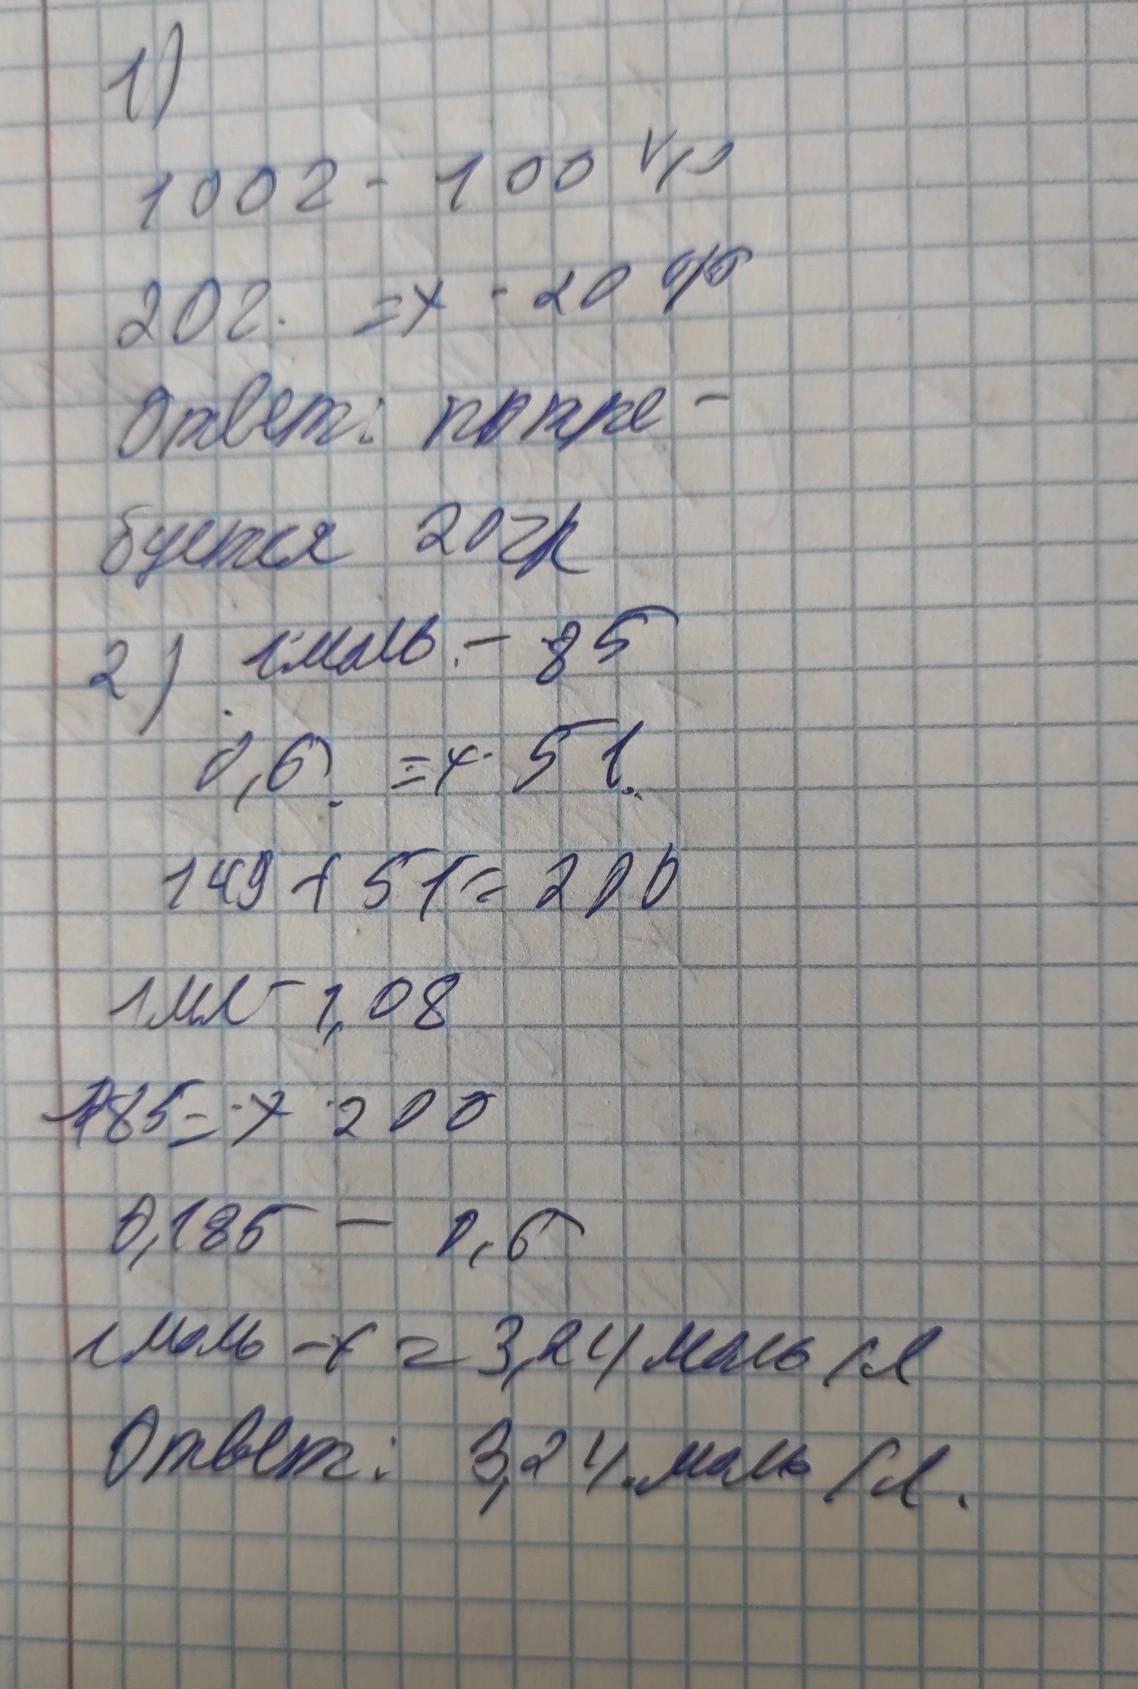 1)
100г - 100
20г. = x - 20
Ответ: потре-
буется 20гр
2) 1моль. - 85
0,6. = x 51.
149 + 51 = 200
1мл - 1,08
185 = x 200
0,185 - 0,6
1моль - x = 3,24 моль/л
Ответ: 3,24 моль/л.